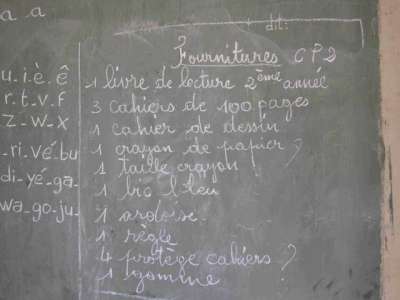 a a
dit:
Fournitures CP2
u.i.è.ê
1 livre de lecture 2ème année
r.t.v.f
3 cahiers de 100 pages
z-w-x
1 cahier de dessin
-ri-vé-bu
1 crayon de papier ?
1 taille crayon
di-yé-ga-
1 bic bleu
wa-go-ju-
1 ardoise
1 règle
4 protège cahiers ?
1 gomme